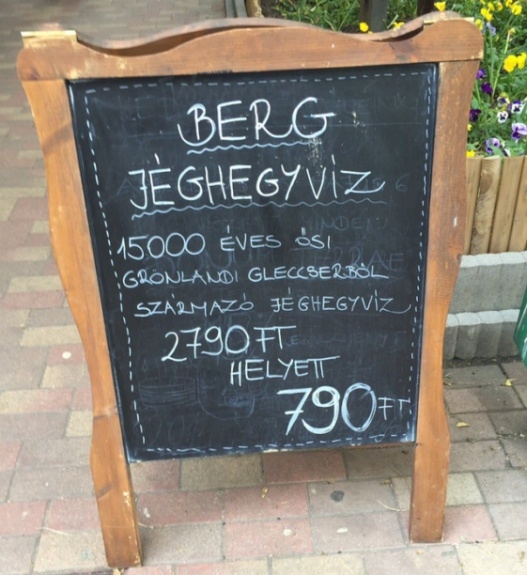 BERG
JÉGHEGYVÍZ
15000 ÉVES ŐSI
GRÖNLANDI GLECCSERBŐL
SZÁRMAZÓ JÉGHEGYVIZ
2790 FT
HELYETT
790 FT